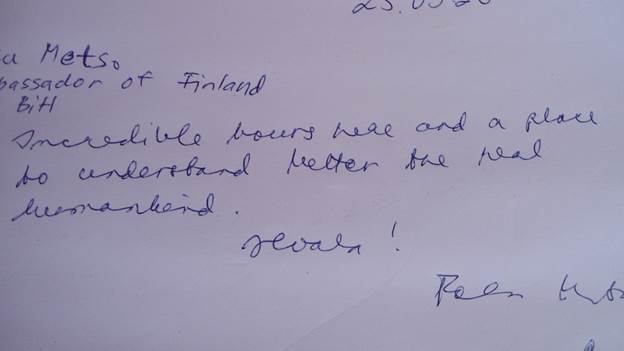 Metso
Ambassador of Finland
BiH
Incredible hours here and a place
to understand better the real
humankind.
Hvala!